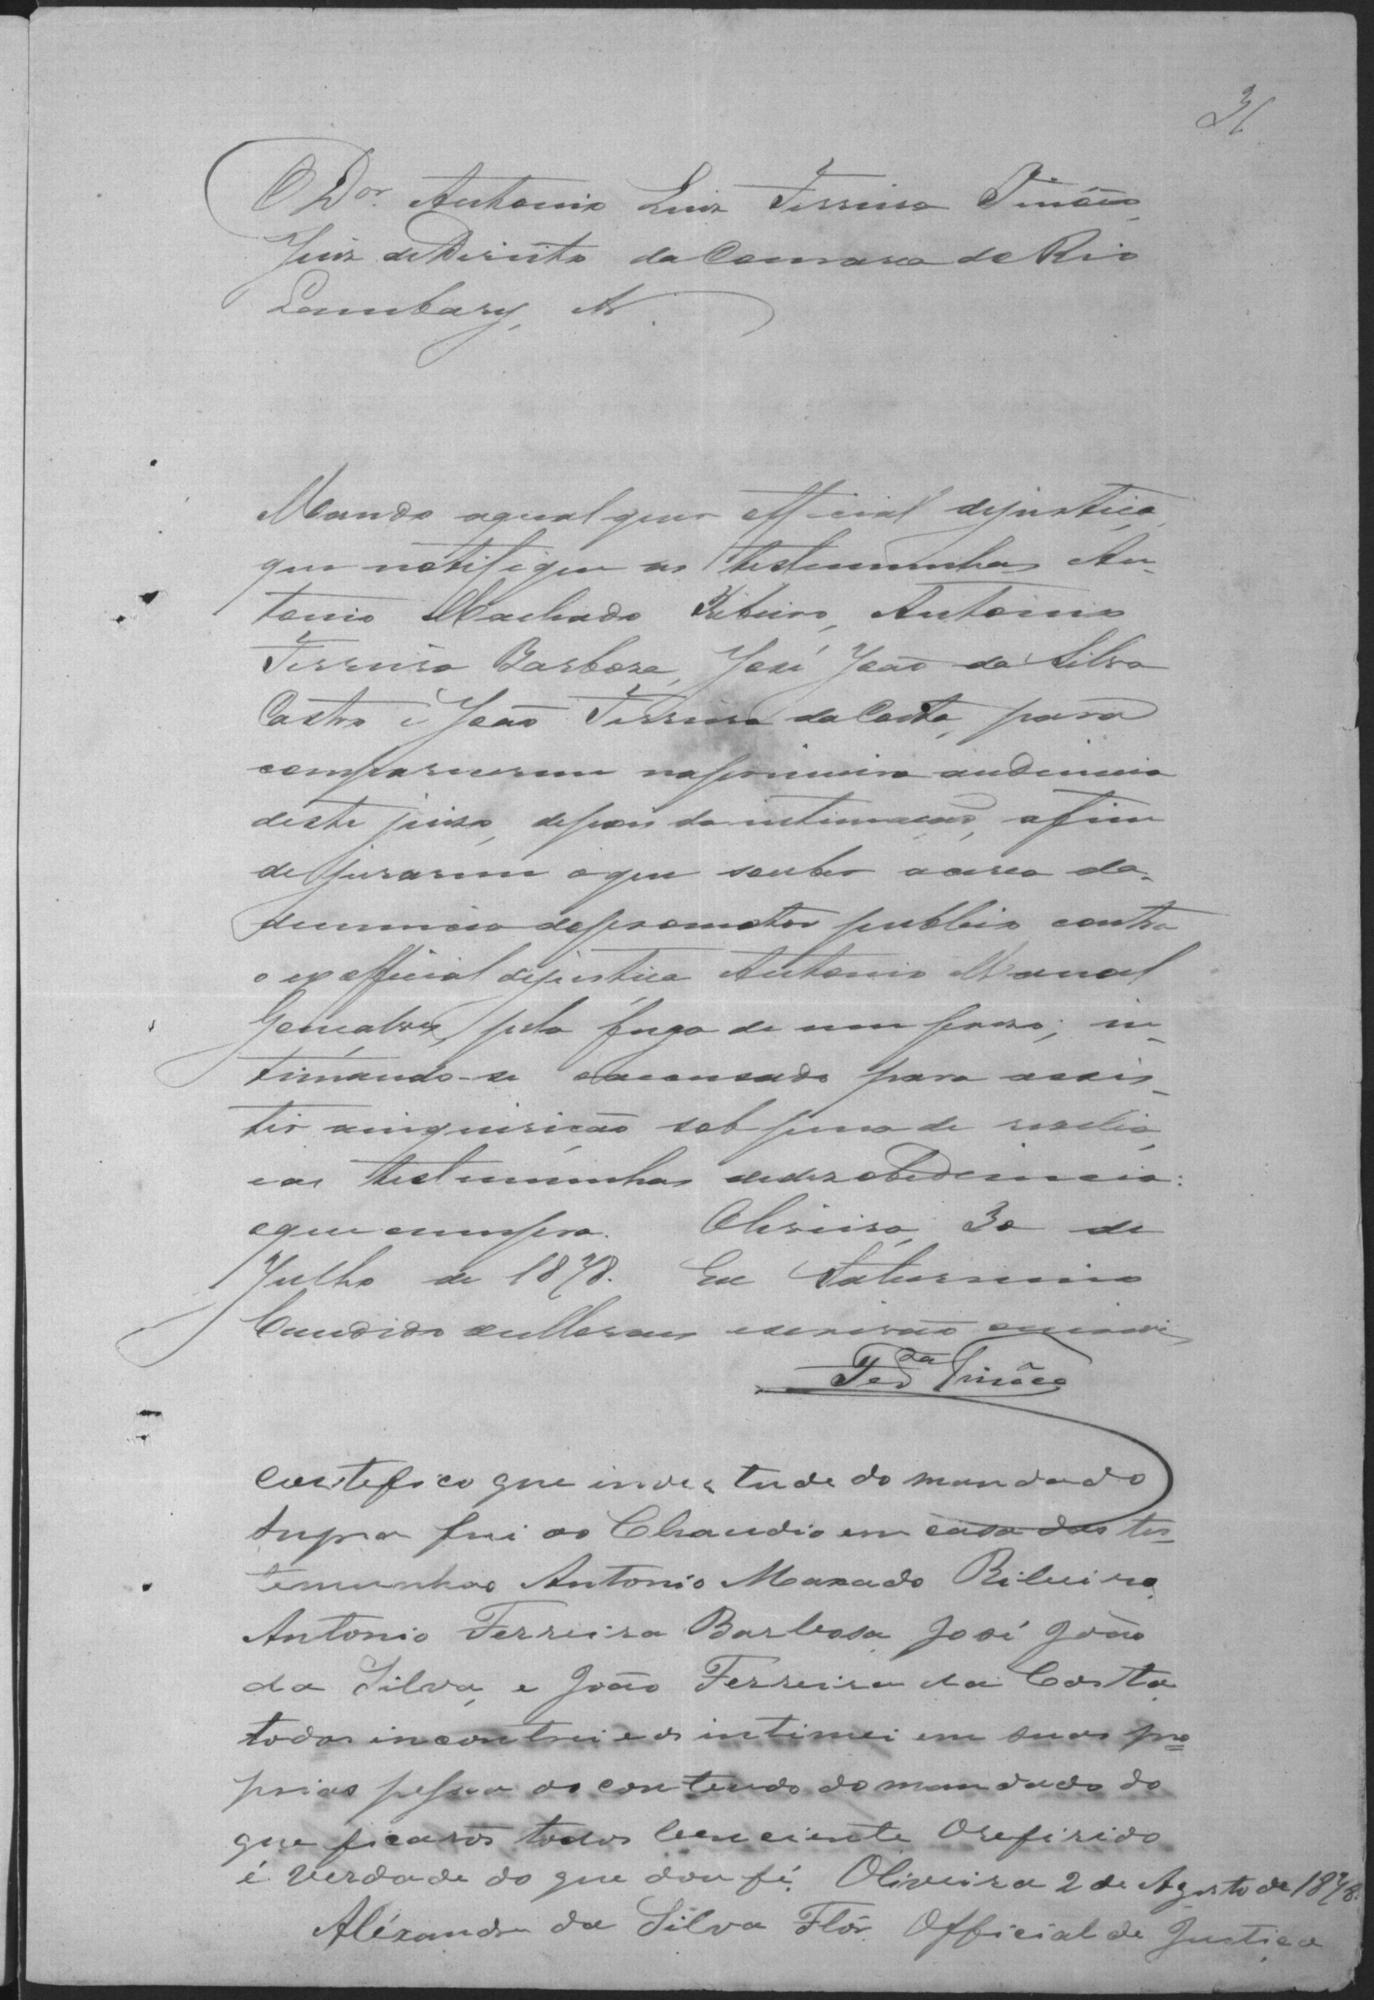 31
O Dor. Antonio Luiz Ferreira Tinôco,
Juiz de Direito da Comarca do Rio
Lambary, &.
Mando a qualquer official dejustiça,
que notifique as testemunhas An-
tonio Machado Ribeiro, Antonio
Ferreira Barboza, José João da Silva
Castro e João Ferreira da Costa, para
comparecerem naprimeira audiencia
deste juizo, depois da intimacão, afim
de jurarem oque souber acerca da
denuncia dopromotor publico contra
o ex official dejustiça Antonio Manoel
Goncalves, pela fuga de um prezo; in-
timando-se oaccusado para assis-
tir ainquirição sob pena de revelia,
eas testemunhas dedezobediencia:
oque cumpra. Oliveira, 30 de
Julho de 1878. Eu Saturnino
Candido escrivão oescrevi
Fer.da Tinôco
Certefico que invertude do mandado
supra fui ao Claudio em casa das tes=
temunhas Antonio Maxado Ribeiro,
Antonio Ferreira Barbosa José João
da Silva, e João Ferreira da Costa,
todos incontrei e os intimei em suas pro=
prias pessoa oo conteudo do mandado do
que ficarão todos bem ciente Oreferido
é verdade do que dou fé. Oliveira 2 de Agosto de 1878.
Aléxandre da Silva Flôr Official de Justiça